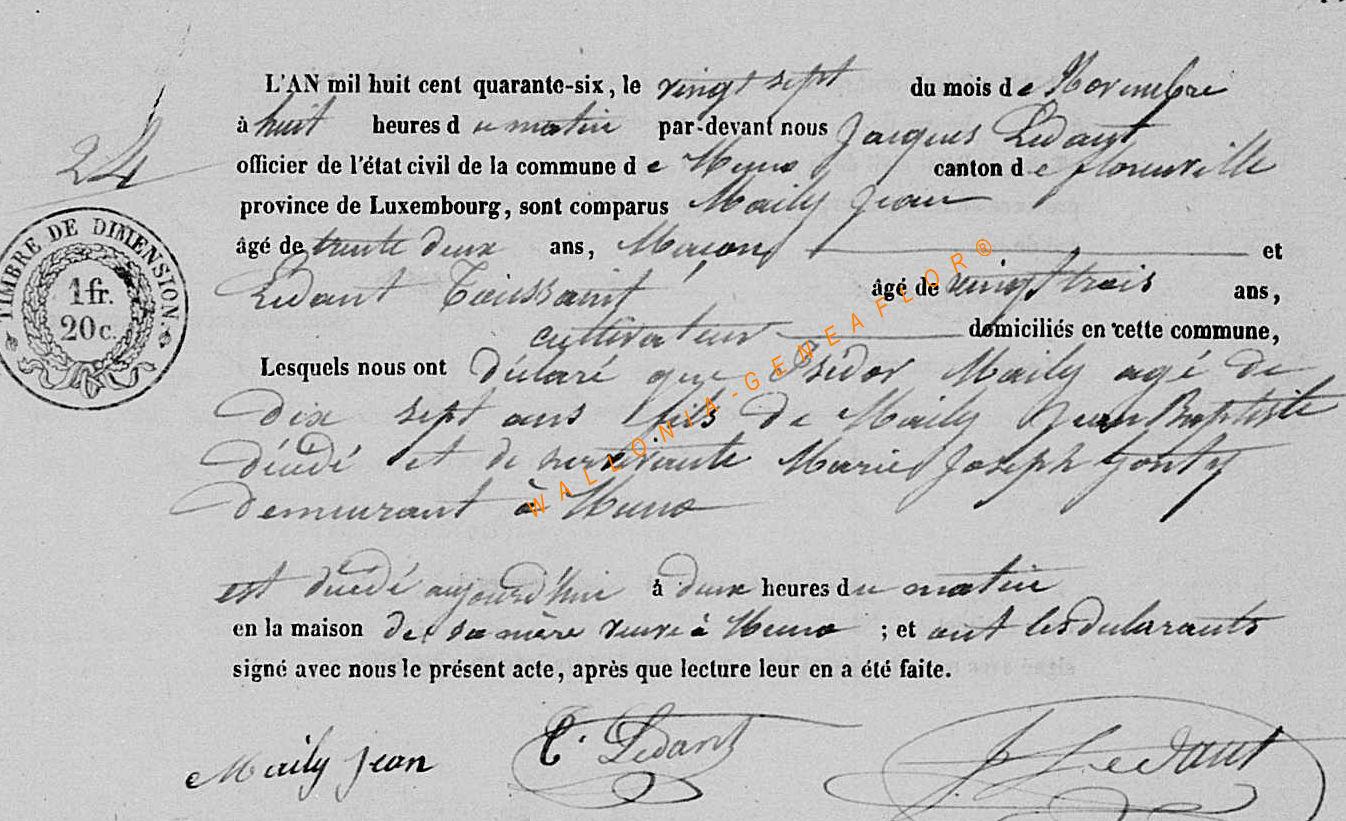 L'AN mil huit cent quarante-six, le vingt sept du mois de Novembre
à huit heures du matin par-devant nous Jacques Ledant
24
officier de l'état civil de la commune de Muno canton de florenville
province de Luxembourg, sont comparus Maily Jean
âgé de trente deux ans, Maçon et
Ledant Toussaint âgé de vingt trois ans,
cultivateur domiciliés en cette commune,
Lesquels nous ont déclaré que Isidor Maily agé de
dix sept ans fils de Maily Jean Baptiste
décédé et de survivante Marie Joseph Gonty
demeurant à Muno
est décédé aujourd'hui à deux heures du matin
en la maison de sa mère veuve à Muno ; et ont les déclarants
signé avec nous le présent acte, après que lecture leur en a été faite.
Maily Jean T. Ledant J. Ledant
TIMBRE DE DIMENSION.
1 fr.
20 c.
WALLONIA-GENEAFLOR®